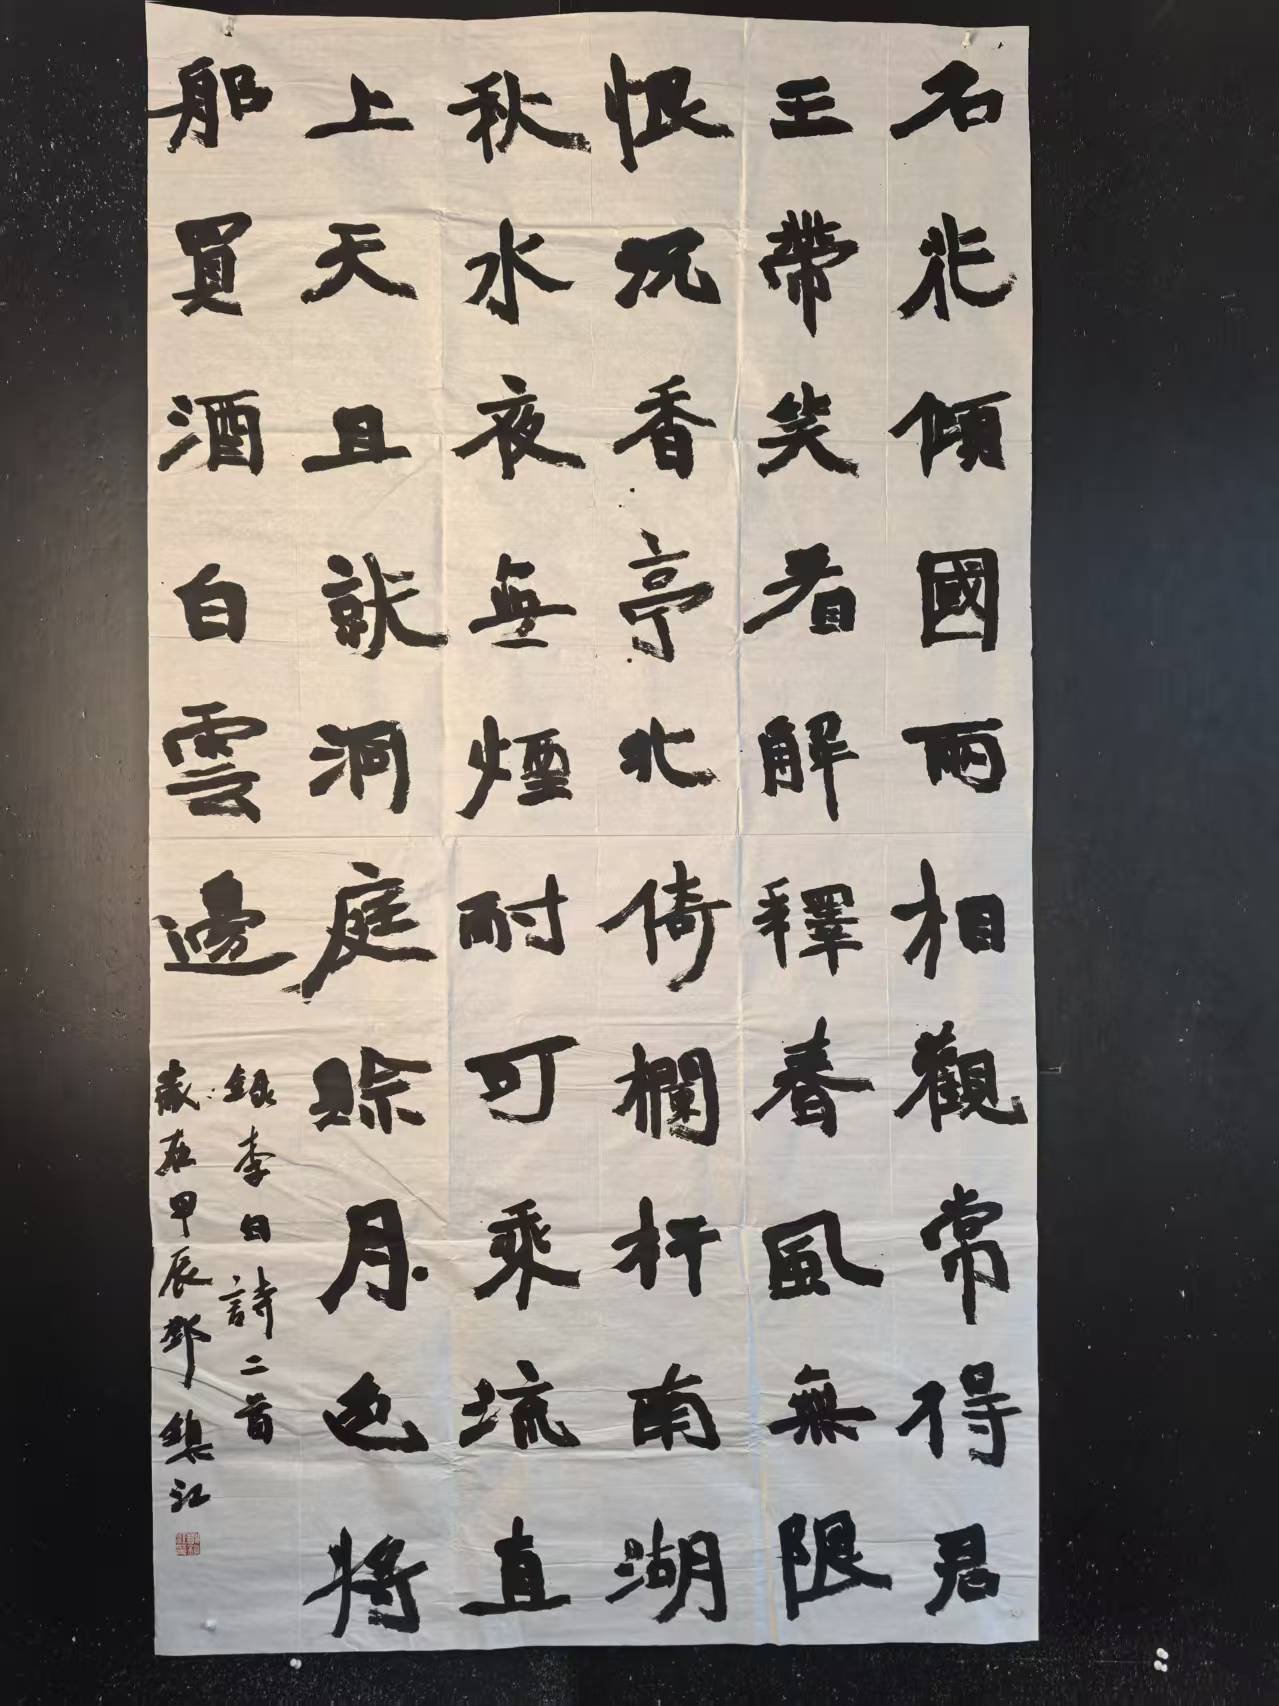 名花傾國兩相觀常得君
王帶笑看解釋春風無限
恨沉香亭北倚欄杆南湖
秋水夜無煙耐可乘流直
上天且就洞庭賒月色將
船買酒白雲邊
錄李白詩二首
歲在甲辰鄧鎮江